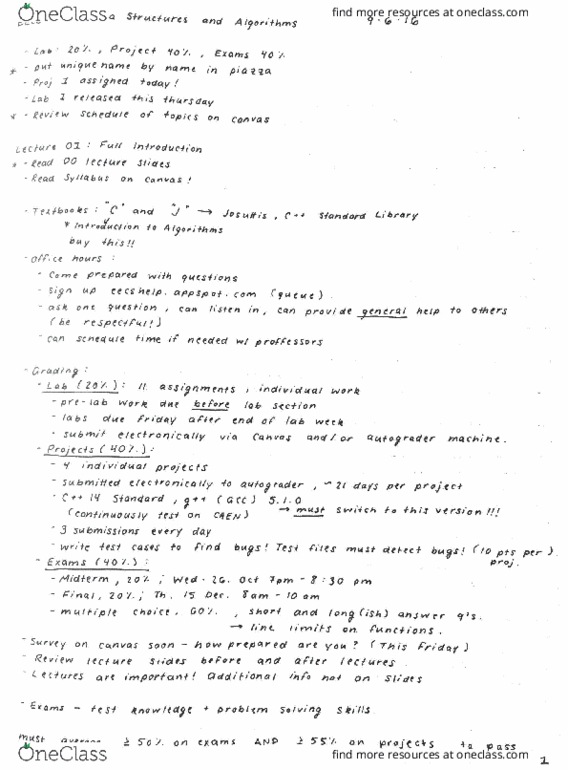 OneClass
find more resources at oneclass.com
Structures and Algorithms
9·6·16
- Lab: 20%, Project 40%, Exams 40%
* - put uniquename by name in piazza
- Proj 1 assigned today!
- Lab 1 released this thursday
* - Review schedule of topics on canvas
Lecture 01: Full Introduction
* - Read 00 lecture slides
- Read Syllabus on Canvas!
- Textbooks: "C" and "J" → Josuttis, C++ Standard Library
* Introduction to Algorithms
buy this!!
- Office hours:
- Come prepared with questions
- Sign up eecshelp.appspot.com (queue)
- ask one question, can listen in, can provide general help to others
(be respectful!)
- can schedule time if needed w/ proffessors
- Grading:
- Lab (20%): 11 assignments, individual work
- pre-lab work due before lab section
- labs due Friday after end of lab week
- submit electronically via Canvas and/or autograder machine.
- Projects (40%):
- 4 individual projects
- submitted electronically to autograder, ~21 days per project
- C++ 14 Standard, g++ (GCC) 5.1.0
(continuously test on CAEN) → must switch to this version!!!
- 3 submissions every day
- write test cases to find bugs! Test files must detect bugs! (10 pts per proj.)
- Exams (40%):
- Midterm, 20%; Wed. 26. Oct 7pm - 8:30 pm
- Final, 20%; Th. 15 Dec. 8am - 10am
- multiple choice. 60%, short and long(ish) answer q's.
→ line limits on functions.
- Survey on canvas soon - how prepared are you? (This Friday)
- Review lecture slides before and after lectures
- Lectures are important! Additional info not on slides
- Exams - test knowledge + problem solving skills
must ≥ 50% on exams AND ≥ 55% on projects to pass
OneClass
find more resources at oneclass.com
1